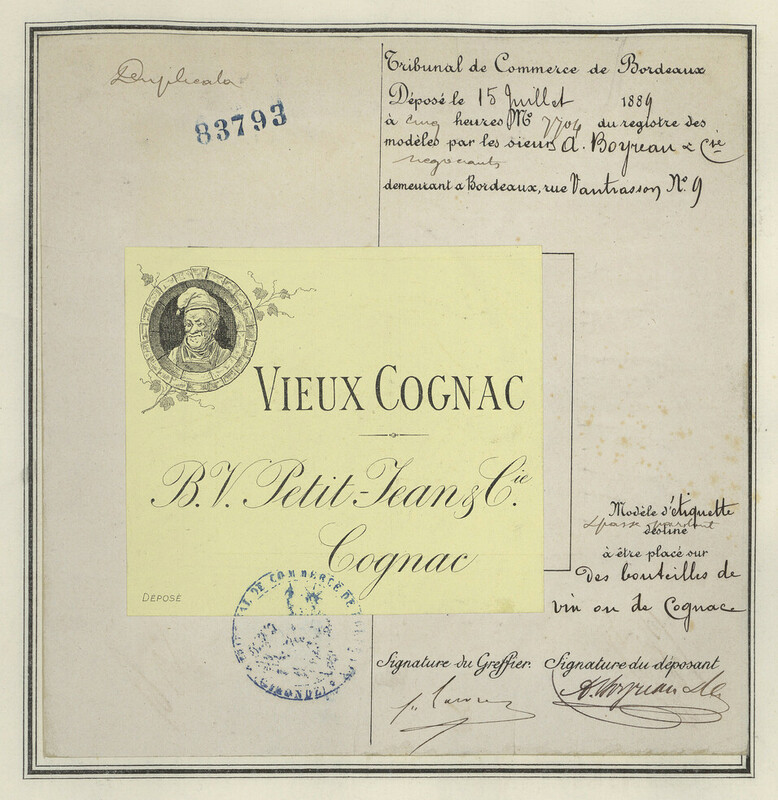 Duplicata
83793
Tribunal de Commerce de Bordeaux
Déposé le 15 Juillet 1889
à cinq heures No 7704 du registre des
modèles par les sieurs A. Boyreau & Cie
negociants
demeurant a Bordeaux, rue Vantrasson No. 9
VIEUX COGNAC
B.V. Petit-Jean & Cie.
Cognac
DEPOSÉ
Modèle d'étiquette
passe partout
destiné
à être placé sur
des bouteilles de
vin ou de Cognac
TRIBUNAL DE COMMERCE DE
(GIRONDE)
Signature du Greffier: Signature du déposant
A. Boyreau & Cie